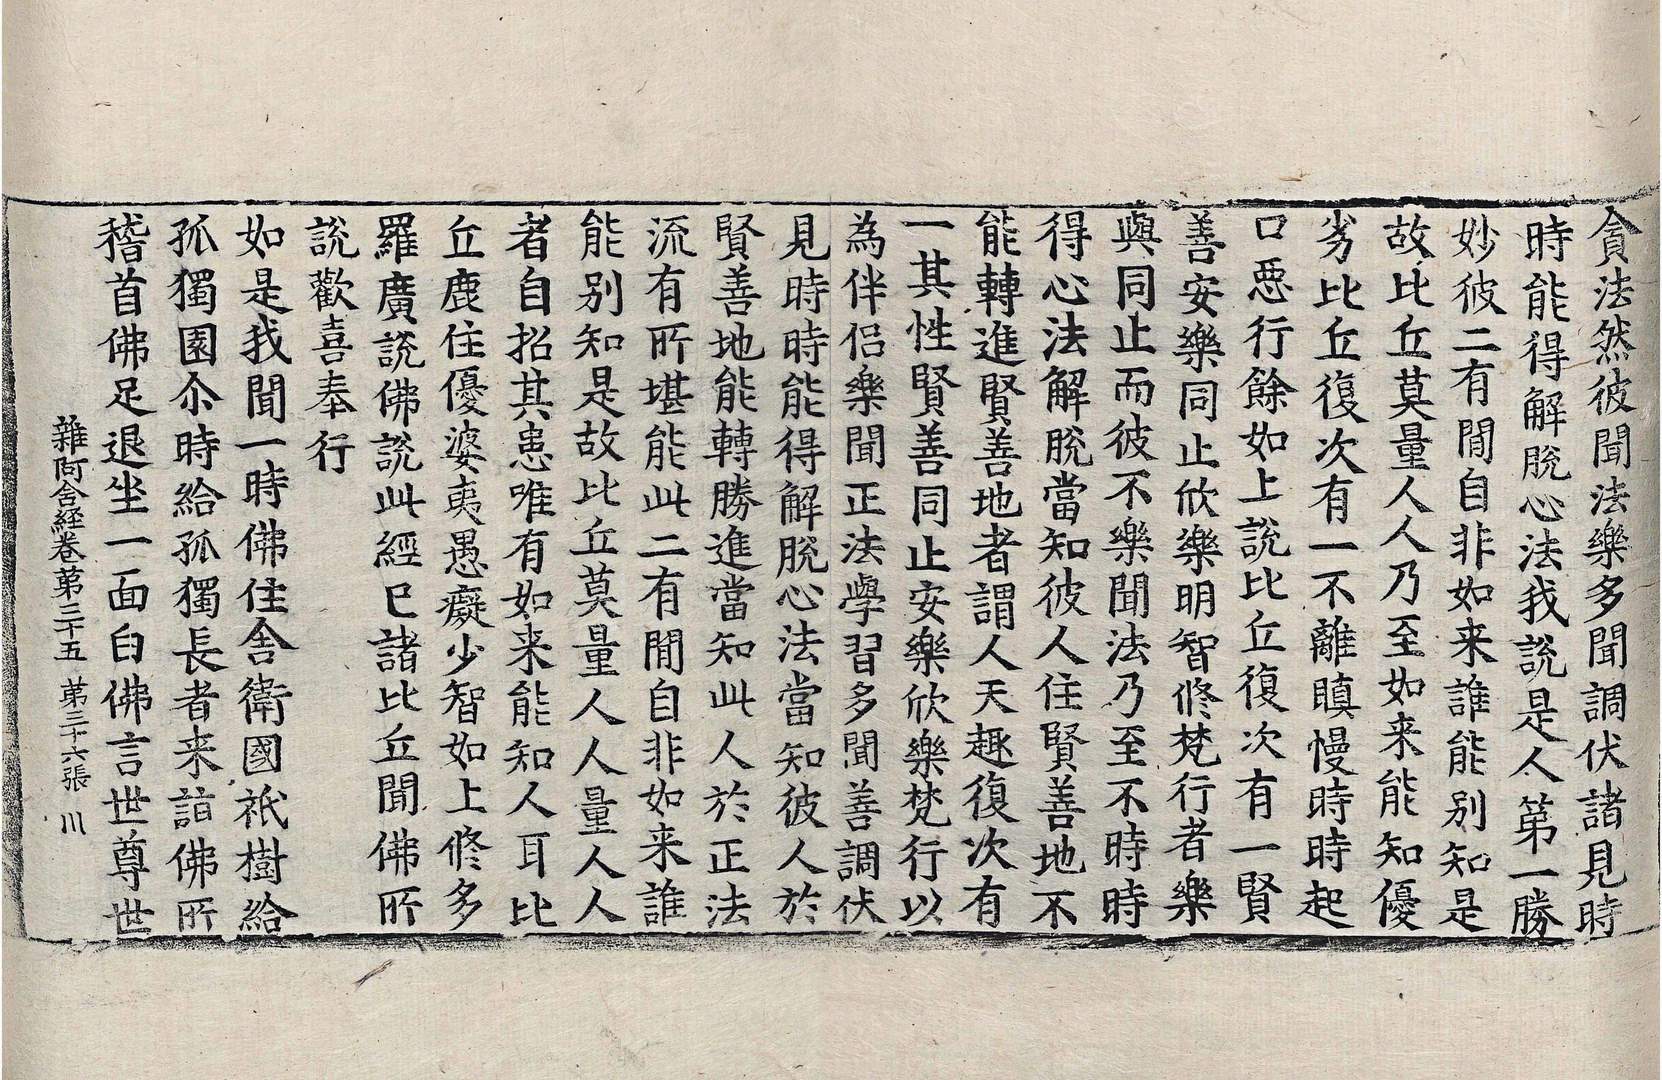 貪法然彼聞法樂多聞調伏諸見時
時能得解脫心法我說是人第一勝
妙彼二有閒自非如来誰能別知是
故比丘莫量人人乃至如来能知優
劣比丘復次有一不離瞋慢時時起
口惡行餘如上說比丘復次有一賢
善安樂同止欣樂明智修梵行者樂
與同止而彼不樂聞法乃至不時時
得心法解脫當知彼人住賢善地不
能轉進賢善地者謂人天趣復次有
一其性賢善同止安樂欣樂梵行以
為伴侣樂聞正法學習多聞善調伏
見時時能得解脫心法當知彼人於
賢善地能轉勝進當知此人於正法
流有所堪能此二有閒自非如来誰
能别知是故比丘莫量人人量人人
者自招其患唯有如来能知人耳比
丘鹿住優婆夷愚癡少智如上修多
羅廣說佛說此經已諸比丘聞佛所
說歡喜奉行
如是我聞一時佛住舍衛國祇樹給
孤獨園尒時給孤獨長者来詣佛所
稽首佛足退坐一面白佛言世尊世
雜阿含経卷第三十五 第三十六張 川